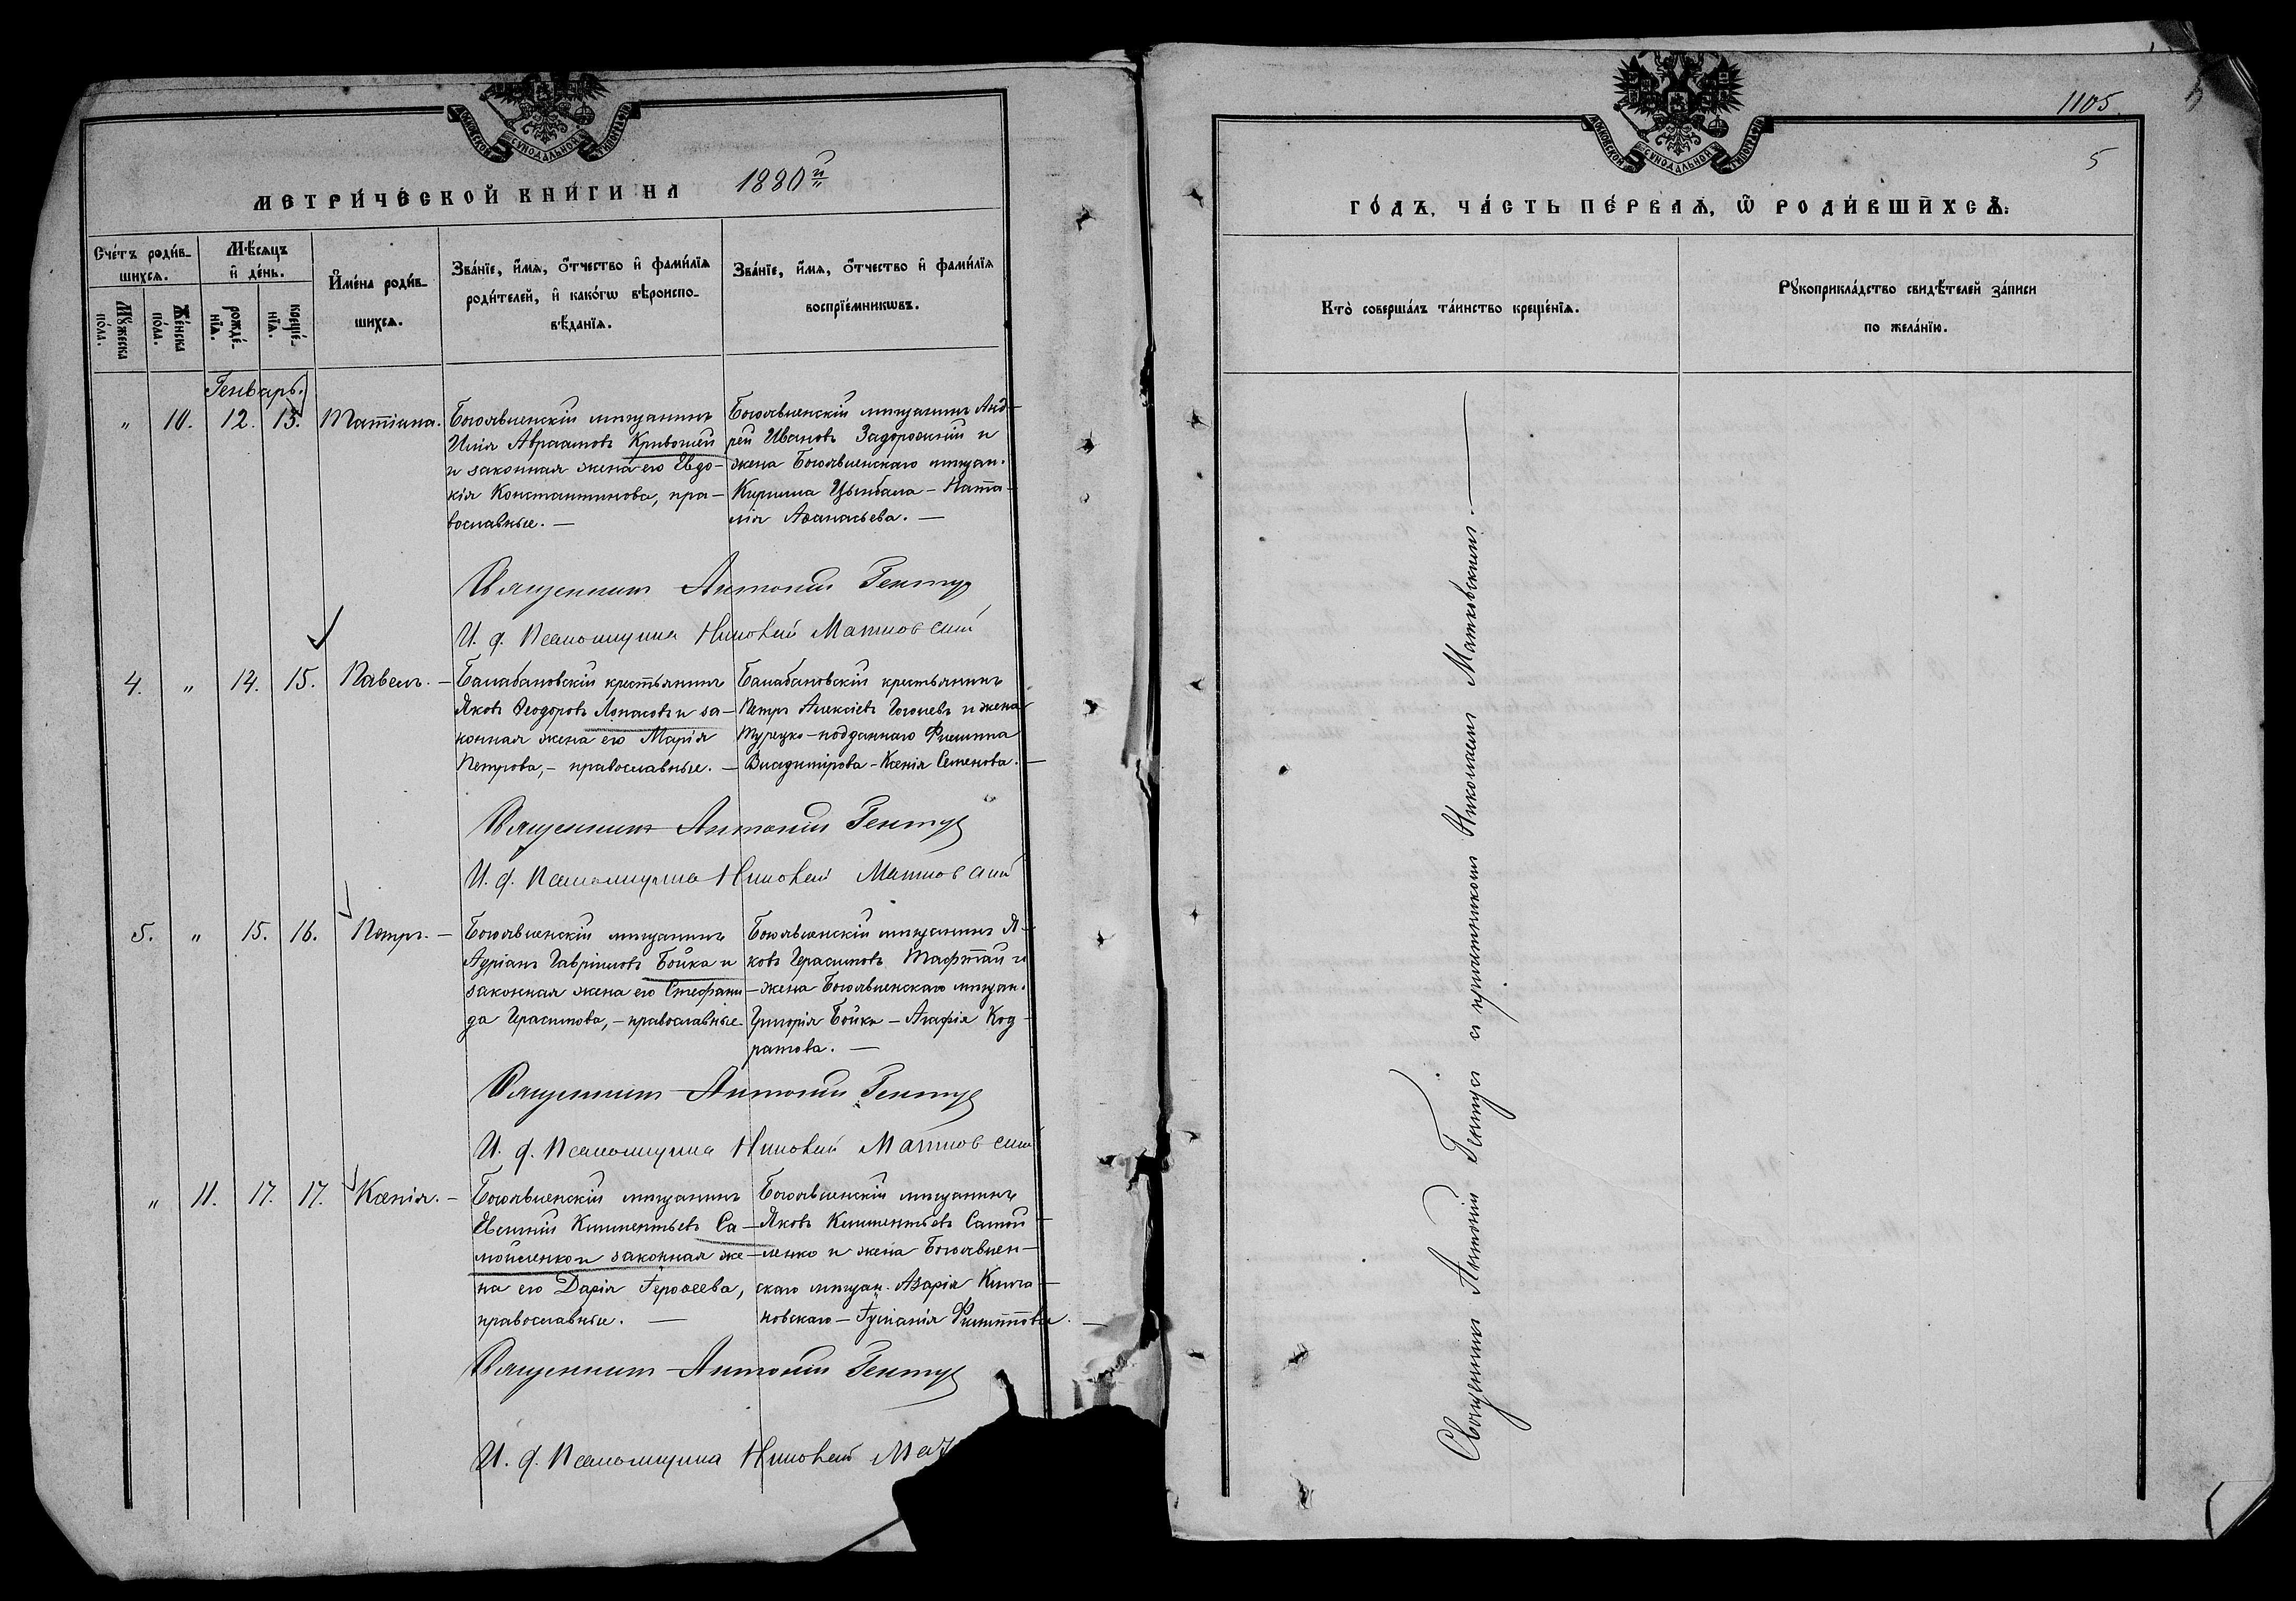 МОСКОВСКОЙ СѴНОДАЛЬНОЙ ТИПОГРАФІИ
МЕТРИ́ЧЕСКОЙ КНИ́ГИ НА 1880й
Сче́тъ роди́в-
шихсѧ.
Мѣ́сѧцъ
и҆ де́нь.
И҆мена̀ роди́в-
шихсѧ.
Зва́нїе, и҆́мѧ, ѻ҆́тчество и҆ фами́лїѧ
роди́телей, и҆ како́гѡ вѣроиспо-
вѣ́данїѧ.
Зва́нїе, и҆́мѧ, ѻ҆́тчество и҆ фами́лїѧ
воспрїе́мникѡвъ.
Мꙋ́жеска
по́ла.
Же́нска
по́ла.
рожде́-
нїѧ.
креще́-
нїѧ.
Генварь.
" 10. 12. 13. Татіана.
Богоявленскій мѣщанинъ
Илія Авраамовъ Кривошей
и законная жена его Евдо-
кія Константинова, пра-
вославные. —
Богоявленскій мѣщанинъ Анд-
рей Ивановъ Задорожній и
жена Богоявленскаго мѣщан.
Кирилла Цымбала - Ната-
лія Аѳанасьева. —
Священникъ Антоній Гентуг
И. д. Псаломщика Николай Матковскій
4. " 14. 15. Павелъ. -
Балабановскій крестьянинъ
Яковъ Ѳеодоровъ Лопасовъ и за-
конная жена его Марія
Петрова, - православные. -
Балабановскій крестьянинъ
Петръ Алексіевъ Гогоневъ и жена
Турецко-подданнаго Филиппа
Владимірова - Ксенія Семенова. —
Священникъ Антоній Гентуг
И. д. Псаломщика Николай Матковскій
5. " 15. 16. Петръ. -
Богоявленскій мѣщанинъ
Адріанъ Гавріиловъ Бойка и
законная жена его Стефани-
да Герасимова, - православные.
Богоявленскій мѣщанинъ Я-
ковъ Герасимовъ Тафтай и
жена Богоявленскаго мѣщан.
Григорія Бойка - Агафія Код-
ратова. —
Священникъ Антоній Гентуг
И. д. Псаломщика Николай Матковскій
" 11. 17. 17. Ксенія. -
Богоявленскій мѣщанинъ
Евстиній Климентьевъ Са-
мойленко и законная же-
на его Дарія Героѳеева,
православные. —
Богоявленскій мѣщанинъ
Яковъ Климентьевъ Самой-
ленко и жена Богоявлен-
скаго мѣщан. Азарія Клима-
новскаго - Гуліанія Филиппова. —
Священникъ Антоній Гентуг
И. д. Псаломщика Николай Мат
1105.
5
МОСКОВСКОЙ СѴНОДАЛЬНОЙ ТИПОГРАФІИ
ГО́ДЪ, ЧА́СТЬ ПЕ́РВАѦ, Ѡ҆ РОДИ́ВШИХСѦ:
Кто̀ соверша́лъ та́инство креще́нїѧ.
Рꙋкоприкла́дство свидѣ́телей за́писи
по жела́нїю.
Священникъ Антоній Гентуг съ причетникомъ Николаемъ Матковскимъ. —